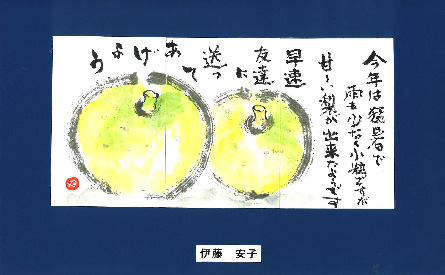 今年は猛暑で
雨も少なく小粒ですが
甘〜い梨が出来たようです
早速
友達に
送って
あげよう
伊藤 安子